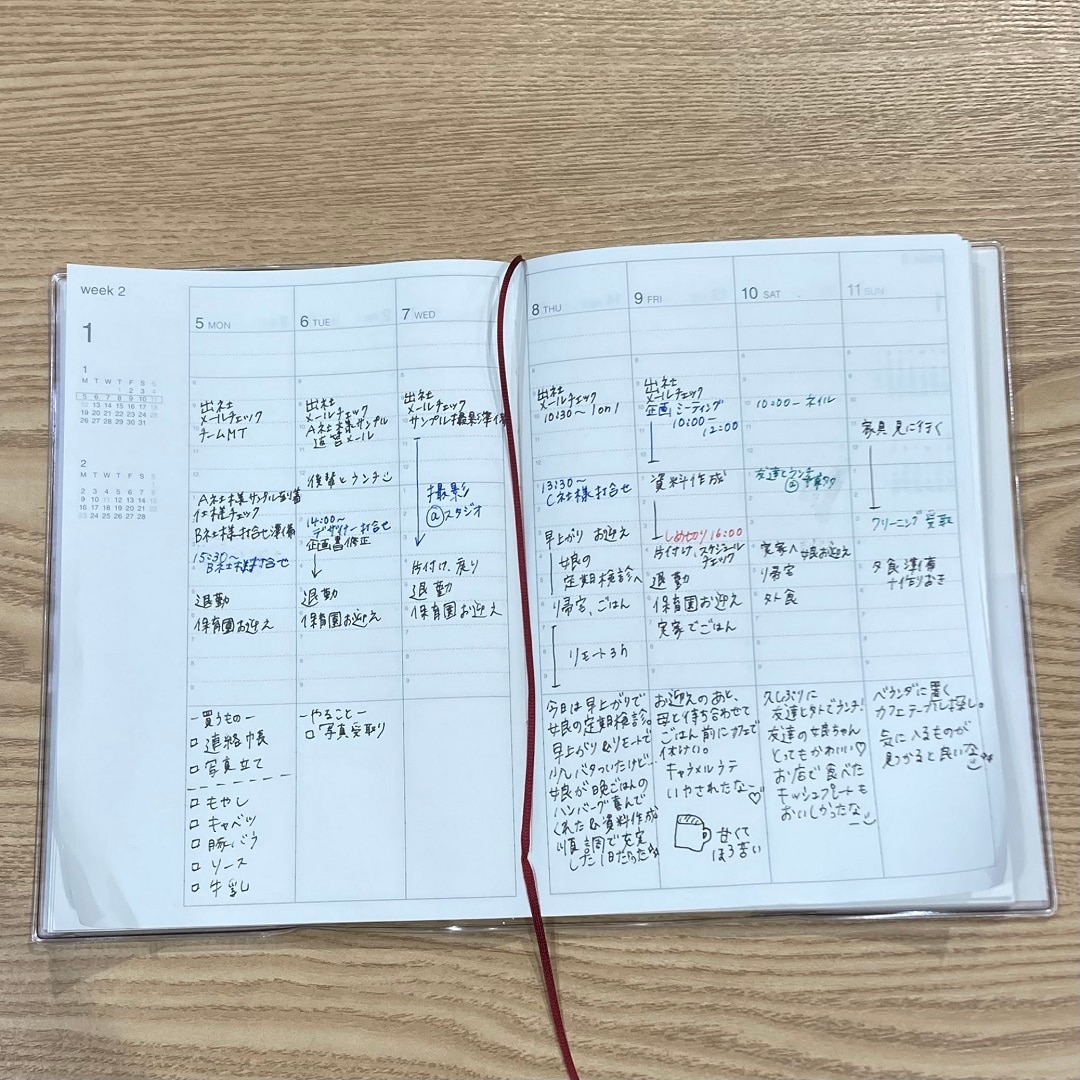 week 2
1
1
M T W T F S S
1 2 3 4
5 6 7 8 9 10 11
12 13 14 15 16 17 18
19 20 21 22 23 24 25
26 27 28 29 30 31
2
M T W T F S S
1
2 3 4 5 6 7 8
9 10 11 12 13 14 15
16 17 18 19 20 21 22
23 24 25 26 27 28
5 MON
出社
メールチェック
チームMT
A社様サンプル到着
仕様チェック
B社様打合せ準備
15:30〜
B社様打合せ
退勤
保育園お迎え
ー買うものー
□ 連絡帳
□ 写真立て
□ もやし
□ キャベツ
□ 豚バラ
□ ソース
□ 牛乳
6 TUE
出社
メールチェック
A社様サンプル
返答メール
後輩とランチ
14:00〜
デザイナー打合せ
企画書修正
退勤
保育園お迎え
ーやることー
□ 写真受取り
7 WED
出社
メールチェック
サンプル撮影準備
撮影
@スタジオ
片付け、戻り
退勤
保育園お迎え
8 THU
出社
メールチェック
10:30〜 1on1
13:30〜
C社様打合せ
早上がり お迎え
娘の
定期検診へ
帰宅、ごはん
リモート3h
今日は早上がりで
娘の定期検診。
早上がり&リモートで
少しバタついたけど…
娘が晩ごはんの
ハンバーグ喜んで
くれた&資料作成
順調で充実
した1日だった
9 FRI
出社
メールチェック
企画ミーティング
10:00ー
12:00
資料作成
しめ切り16:00
片付け、スケジュール
チェック
退勤
保育園お迎え
実家でごはん
お迎えのあと、
母と待ち合わせて
ごはん前にカフェで
休けい。
キャラメルラテ
いやされたなー♡
甘くて
ほろ苦い
10 SAT
10:00ーネイル
友達とランチ
実家へ 娘お迎え
帰宅
外食
久しぶりに
友達とタトでランチ!
友達の娘ちゃん
とってもかわいい♡
お店で食べた
キッシュプレートも
おいしかったな
11 SUN
家具見に行く
クリーニング受取
夕食準備
+作りおき
ベランダに置く
カフェテーブル探し。
気に入るものが
見つかると良いな